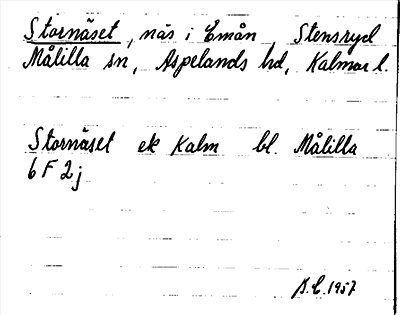 Stornäset, näs i Emån, Stensryd
Målilla sn, Aspelands hd, Kalmar l.
Stornäset ek Kalm bl. Målilla
6 F 2j
B.E. 1957